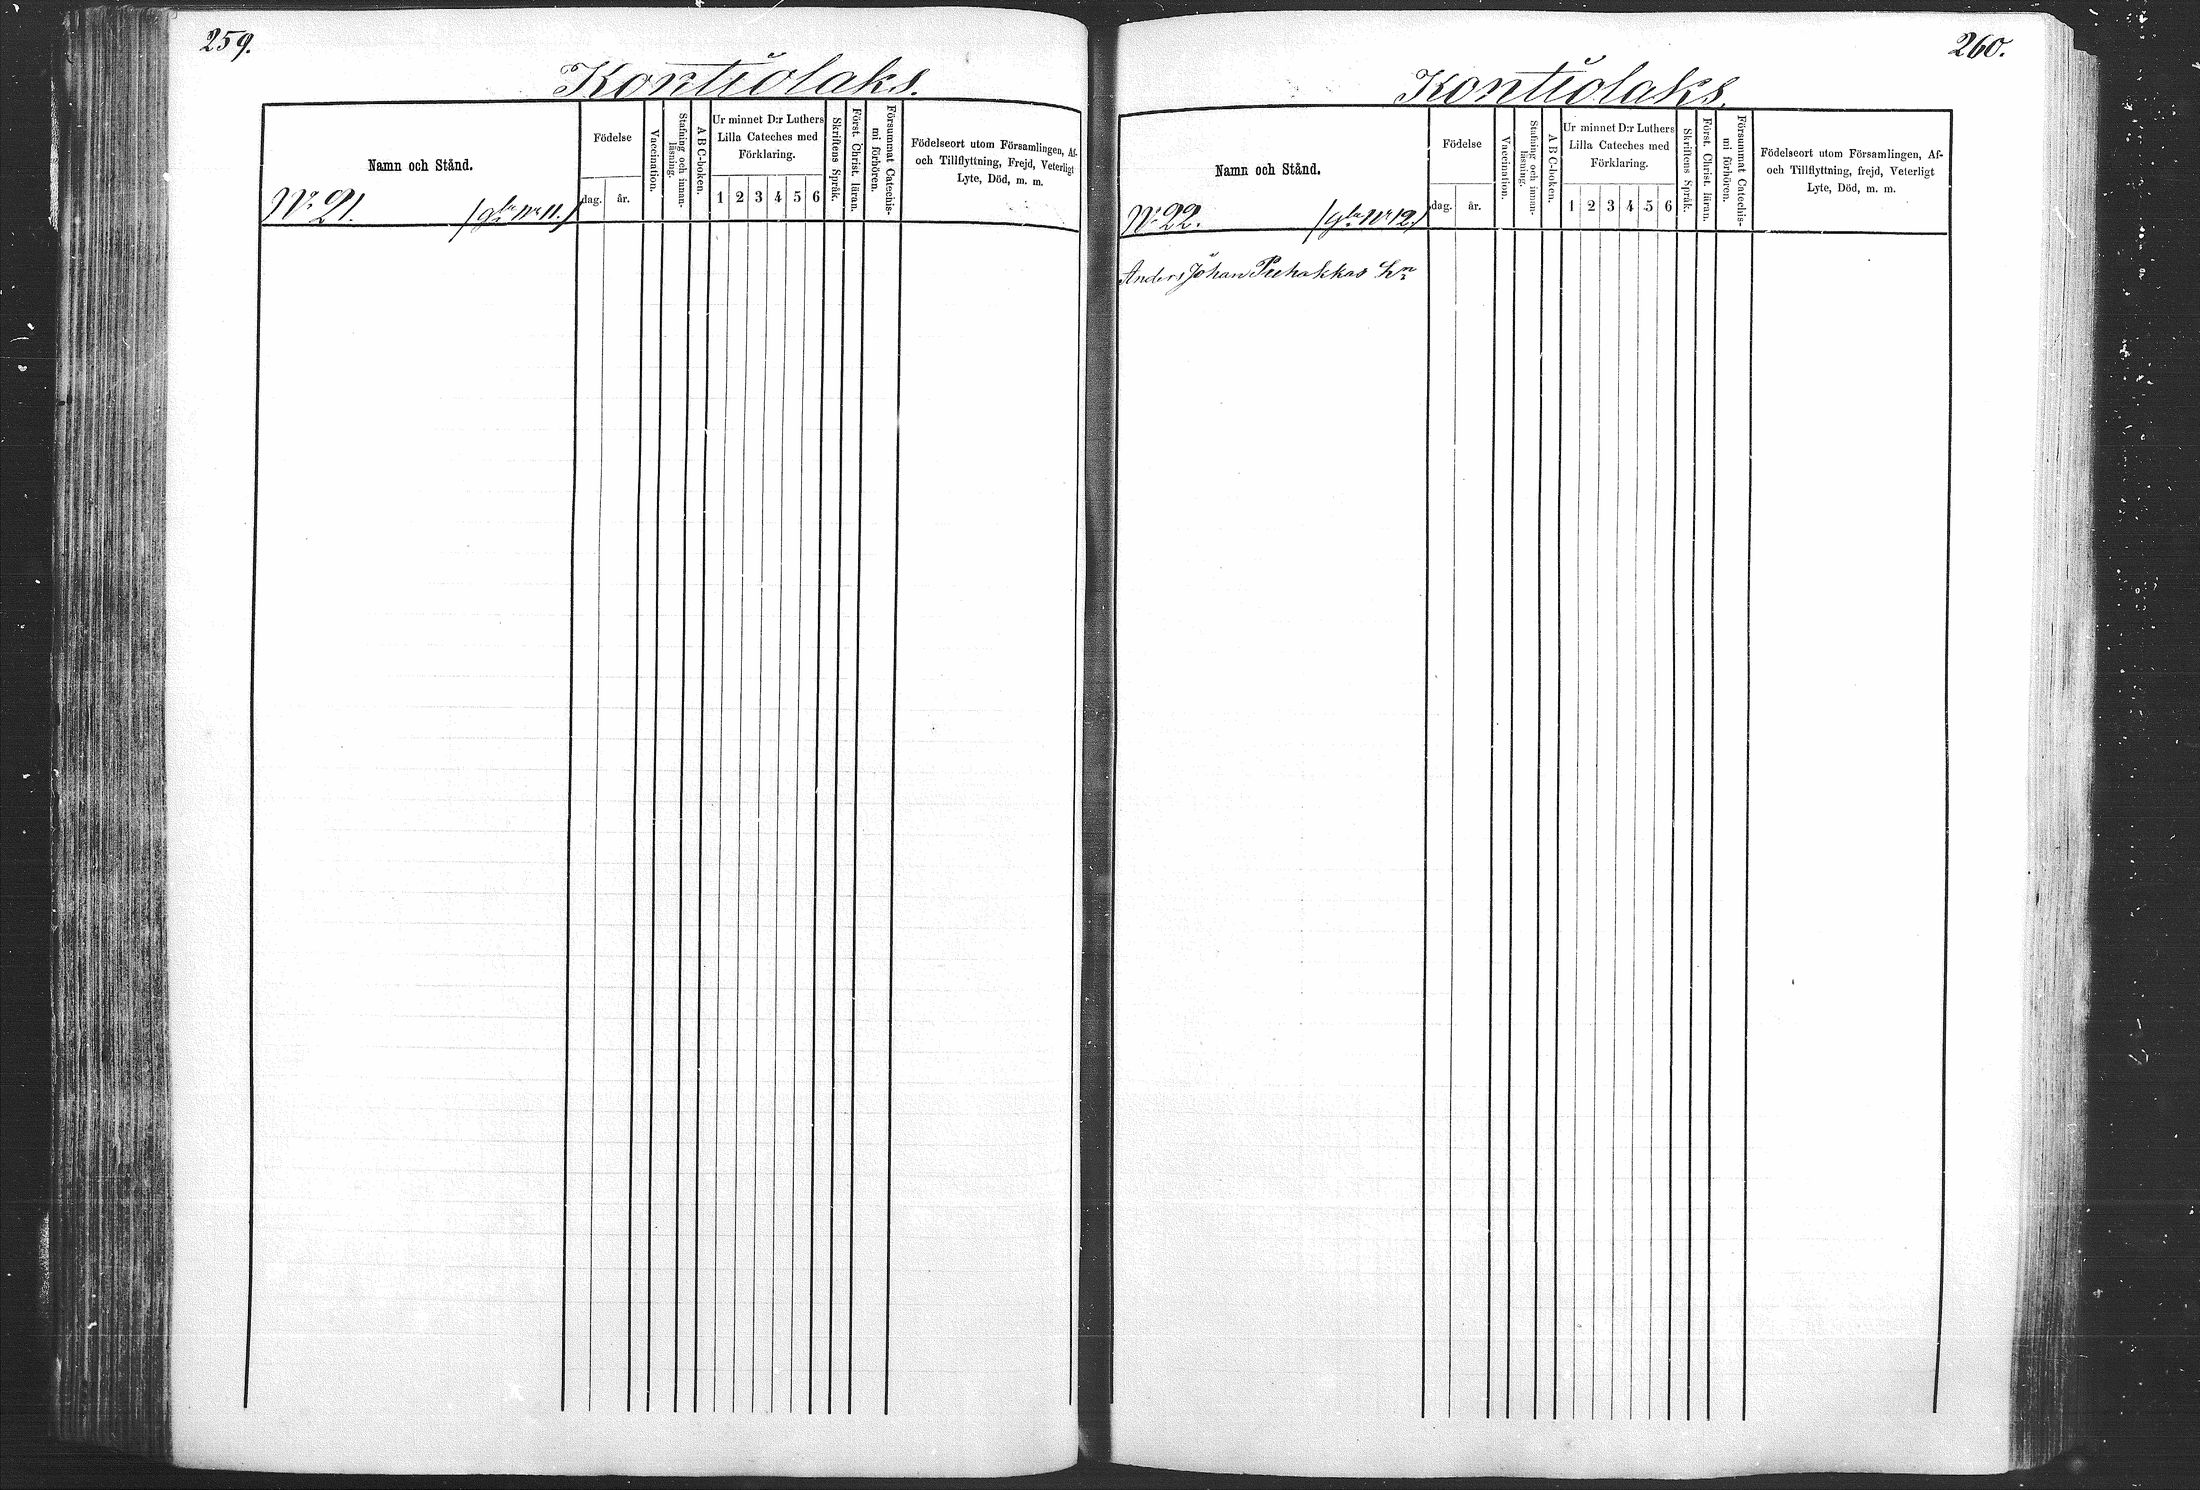 259.
Kontiolaks.
Namn och Stånd.
Födelse
dag.
år.
Vaccination.
Stafning och innan-
läsning.
A B C-boken.
Ur minnet D:r Luthers
Lilla Cateches med
Förklaring.
1 2 3 4 5 6
Skriftens Språk.
Först. Christ. läran.
Försummat Catechis-
mi förhören.
Födelseort utom Församlingen, Af-
och Tillflyttning, Frejd, Veterligt
Lyte, Död, m. m.
Nr 21. (gla Nr 11.)
260.
Kontiolaks.
Namn och Stånd.
Födelse
dag.
år.
Vaccination.
Stafning och innan-
läsning.
A B C-boken.
Ur minnet D:r Luthers
Lilla Cateches med
Förklaring.
1 2 3 4 5 6
Skriftens Språk.
Först. Christ. läran.
Försummat Catechis-
mi förhören.
Födelseort utom Församlingen, Af-
och Tillflyttning, frejd, Veterligt
Lyte, Död, m. m.
Nr 22. (gla Nr 12.)
Anders Johan